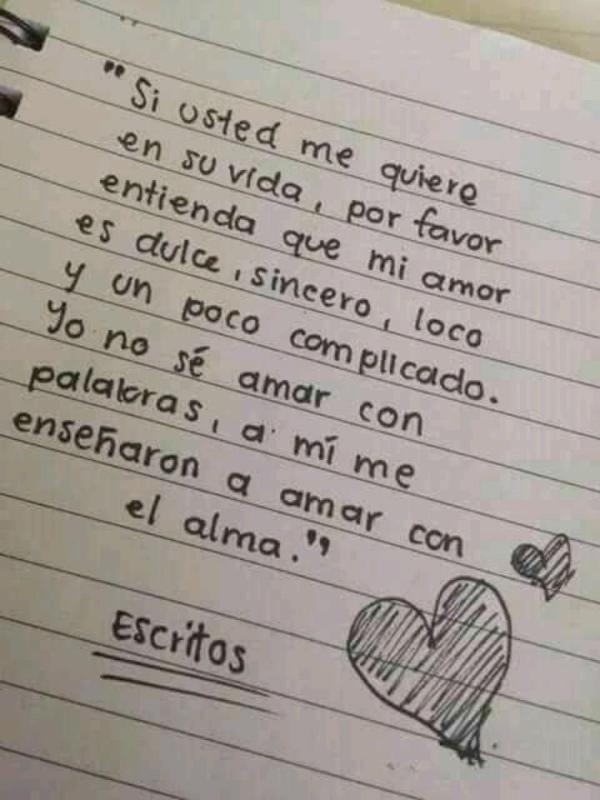 "Si usted me quiere
en su vida, por favor
entienda que mi amor
es dulce, sincero, loco
y un poco complicado.
Yo no sé amar con
palabras, a mí me
enseñaron a amar con
el alma."
Escritos